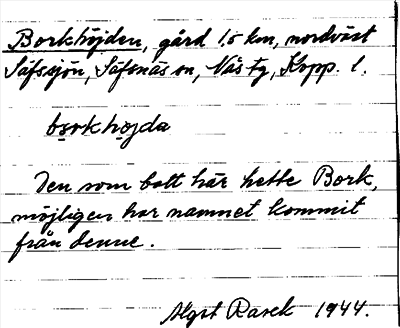 Borkhöjden, gård 1,5 km, nordväst
Säfssjön, Säfsnäs sn, Näs fg, Kopp. l.
borkhöjda
Den som bott här hette Bork,
möjligen har namnet kommit
från denne.
Algot Rasck 1944.